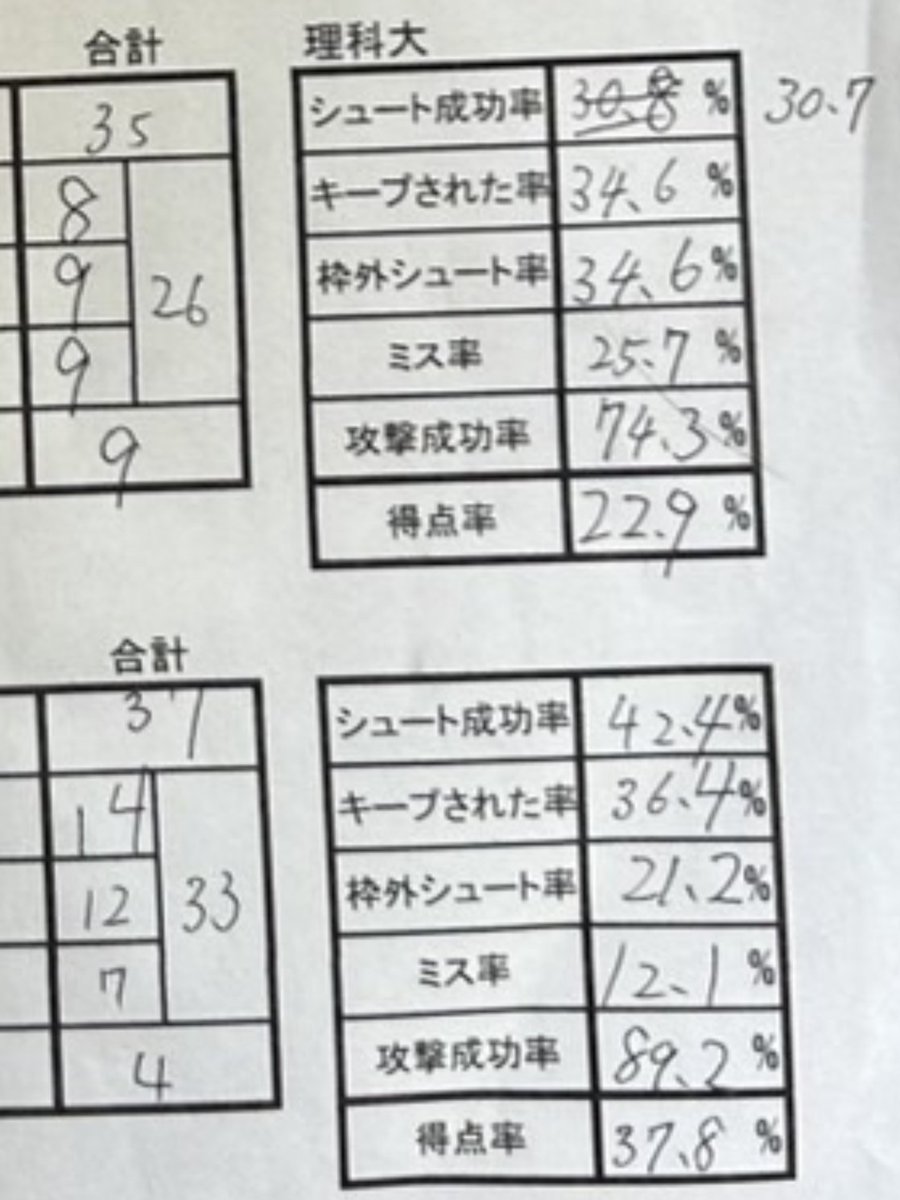 合計
35
8
9
26
9
9
理科大
シュート成功率 30.8 % 30.7
キープされた率 34.6 %
枠外シュート率 34.6 %
ミス率 25.7 %
攻撃成功率 74.3 %
得点率 22.9 %
合計
37
14
12
33
7
4
シュート成功率 42.4 %
キープされた率 36.4 %
枠外シュート率 21.2 %
ミス率 12.1 %
攻撃成功率 89.2 %
得点率 37.8 %